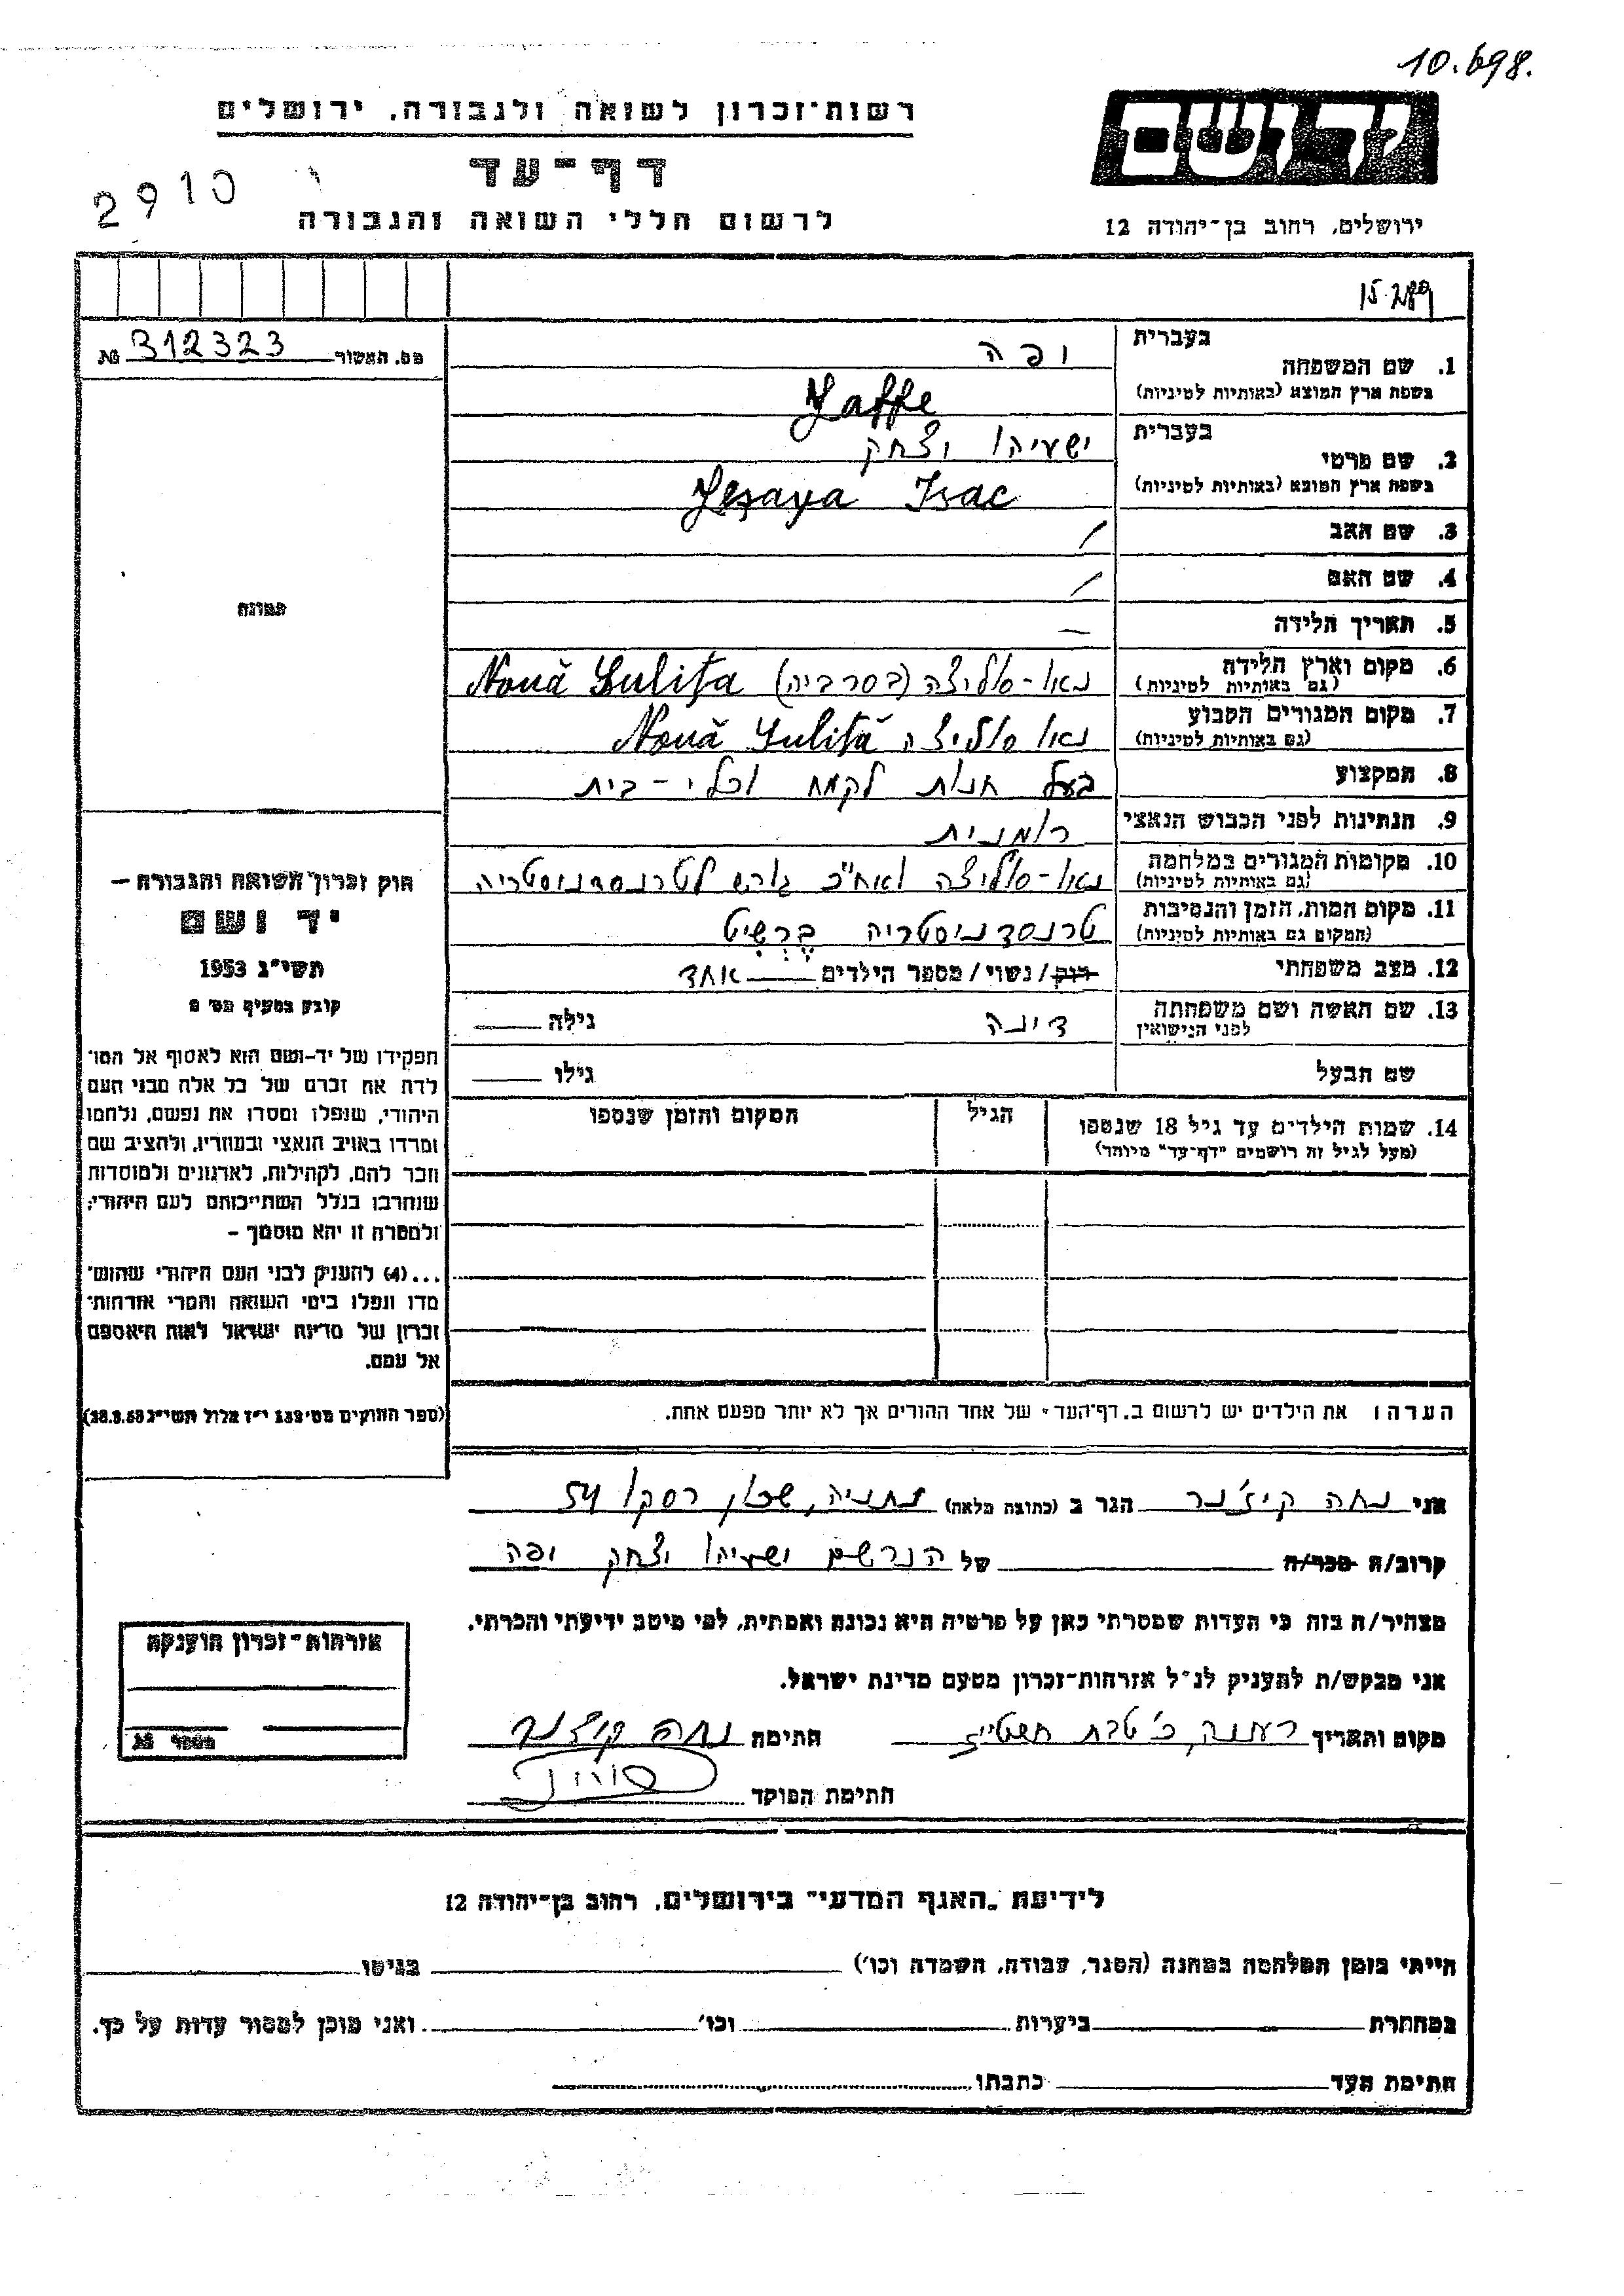 10.698.
רשות־זכרון לשואה ולגבורה, ירושלים
יד ושם
דף־עד
2910
לרשום חללי השואה והגבורה
ירושלים, רחוב בן־יהודה 12
15.289
מס. האשור 312323 №
בעברית
1. שם המשפחה יפה
בשפת ארץ המוצא (באותיות לטיניות) Yaffe
בעברית
2. שם פרטי ישעיהו יצחק
בשפת ארץ המוצא (באותיות לטיניות) Yeşaya Isac
3. שם האב /
4. שם האם /
5. תאריך הלידה —
6. מקום וארץ הלידה נאו-סוליצה (בסרביה) Nouă Suliţa
(גם באותיות לטיניות)
7. מקום המגורים הקבוע נאו סוליצה Nouă Suliţă
(גם באותיות לטיניות)
8. המקצוע בעל חנות לקמח וכלי-בית
9. הנתינות לפני הכבוש הנאצי רומנית
10. מקומות המגורים במלחמה נאו-סוליצה ואח"כ גורש לטרנסדניסטריה
(גם באותיות לטיניות)
11. מקום המות, הזמן והנסיבות טרנסדניסטריה בֶּרְשִׁיט
(המקום גם באותיות לטיניות)
12. מצב משפחתי רווק/נשוי/מספר הילדים אחד
13. שם האשה ושם משפחתה דינה גילה
לפני הנישואין
שם הבעל גילו
14. שמות הילדים עד גיל 18 שנספו הגיל המקום והזמן שנספו
(מעל לגיל זה רושמים "דף־עד" מיוחד)
הערה: את הילדים יש לרשום ב„דף־העד״ של אחד ההורים אך לא יותר מפעם אחת.
תמונה
חוק זכרון השואה והגבורה —
יד ושם
תשי"ג 1953
קובע בסעיף מס׳
תפקידו של יד-ושם הוא לאסוף אל המו־
לדת את זכרם של כל אלה מבני העם
היהודי, שנפלו ומסרו את נפשם, נלחמו
ומרדו באויב הנאצי ובעוזריו, ולהציב שם
וזכר להם, לקהילות, לארגונים ולמוסדות
שנחרבו בגלל השתייכותם לעם היהודי;
ולמטרה זו יהא מוסמך —
...(4) להעניק לבני העם היהודי שהוש־
מדו ונפלו בימי השואה והמרי אזרחות־
זכרון של מדינת ישראל לאות היאספם
אל עמם.
(ספר החוקים מס׳ 132 י"ז אלול תשי"ג 28.8.53)
אני נחה קיז'נר הגר ב (כתובת מלאה) נתניה, שכון רסקו 54
קרוב/ה מכר/ה של הנרשם ישעיהו יצחק יפה
מצהיר/ה בזה כי העדות שמסרתי כאן על פרטיה היא נכונה ואמתית, לפי מיטב ידיעתי והכרתי.
אני מבקש/ת להעניק לנ״ל אזרחות-זכרון מטעם מדינת ישראל.
מקום ותאריך רעננה, כ' טבת תשט"ז חתימה נחה קיז'נר
חתימת הפוקד
אזרחות-זכרון הוענקה
מספר №
לידיעת „האגף המדעי״ בירושלים, רחוב בן־יהודה 12
הייתי בזמן המלחמה במחנה (הסגר, עבודה, השמדה וכו׳) בגיטו
במחתרת ביערות וכו׳ ואני מוכן למסור עדות על כך.
חתימת העד כתבתו